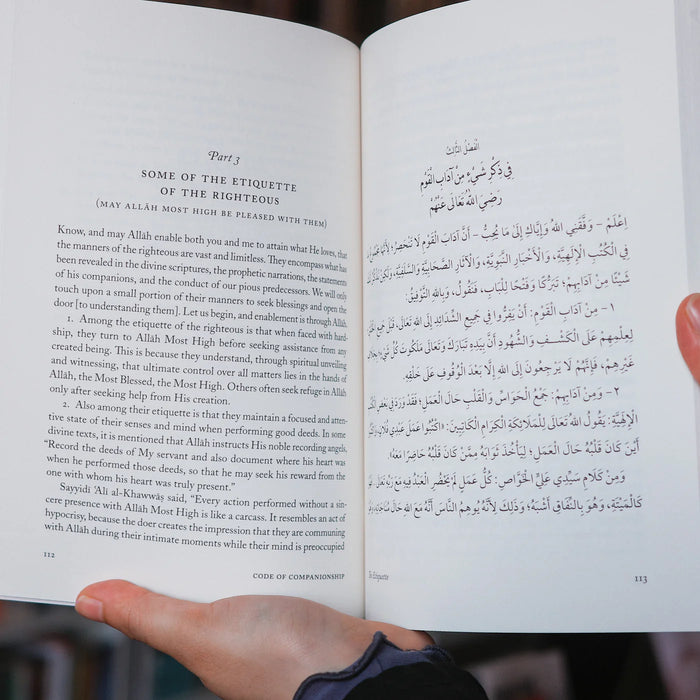 Part 3
SOME OF THE ETIQUETTE
OF THE RIGHTEOUS
(MAY ALLĀH MOST HIGH BE PLEASED WITH THEM)
Know, and may Allāh enable both you and me to attain what He loves, that
the manners of the righteous are vast and limitless. They encompass what has
been revealed in the divine scriptures, the prophetic narrations, the statements
of his companions, and the conduct of our pious predecessors. We will only
touch upon a small portion of their manners to seek blessings and open the
door [to understanding them]. Let us begin, and enablement is through Allāh.
1. Among the etiquette of the righteous is that when faced with hard-
ship, they turn to Allāh Most High before seeking assistance from any
created being. This is because they understand, through spiritual unveiling
and witnessing, that ultimate control over all matters lies in the hands of
Allāh, the Most Blessed, the Most High. Others often seek refuge in Allāh
only after seeking help from His creation.
2. Also among their etiquette is that they maintain a focused and atten-
tive state of their senses and mind when performing good deeds. In some
divine texts, it is mentioned that Allāh instructs His noble recording angels,
“Record the deeds of My servant and also document where his heart was
when he performed those deeds, so that he may seek his reward from the
one with whom his heart was truly present.”
Sayyidī ʿAlī al-Khawwāṣ said, “Every action performed without a sin-
cere presence with Allāh Most High is like a carcass. It resembles an act of
hypocrisy, because the doer creates the impression that they are communing
with Allāh during their intimate moments while their mind is preoccupied
112
CODE OF COMPANIONSHIP
الْفَصْلُ الثَّالِثُ
فِي ذِكْرِ شَيْءٍ مِنْ آدَابِ الْقَوْمِ
رَضِيَ اللهُ تَعَالَى عَنْهُمْ
اِعْلَمْ – وَفَّقَنِي اللهُ وَإِيَّاكَ إِلَى مَا يُحِبُّ – أَنَّ آدَابَ الْقَوْمِ لَا تَنْحَصِرُ؛ لِأَنَّهَا
فِي الْكُتُبِ الْإِلَهِيَّةِ، وَالْأَخْبَارِ النَّبَوِيَّةِ، وَالْآثَارِ الصَّحَابِيَّةِ وَالسَّلَفِيَّةِ، وَلَكِنْ
شَيْئًا مِنْ آدَابِهِمْ؛ تَبَرُّكًا وَفَتْحًا لِلْبَابِ، فَنَقُولُ، وَبِاللهِ التَّوْفِيقُ:
١- مِنْ آدَابِ الْقَوْمِ: أَنْ يَفِرُّوا فِي جَمِيعِ الشَّدَائِدِ إِلَى اللهِ تَعَالَى، قَبْلَ
لِعِلْمِهِمْ عَلَى الْكَشْفِ وَالشُّهُودِ أَنَّ بِيَدِهِ تَبَارَكَ وَتَعَالَى مَلَكُوتَ كُلِّ شَيْءٍ
غَيْرِهِمْ، فَإِنَّهُمْ لَا يَرْجِعُونَ إِلَى اللهِ إِلَّا بَعْدَ الْوُقُوفِ عَلَى خَلْقِهِ
٢- وَمِنْ آدَابِهِمْ: جَمْعُ الْحَوَاسِّ وَالْقَلْبِ حَالَ الْعَمَلِ؛ فَقَدْ وَرَدَ فِي بَعْضِ
الْإِلَهِيَّةِ: يَقُولُ اللهُ تَعَالَى لِلْمَلَائِكَةِ الْكِرَامِ الْكَاتِبِينَ: «اكْتُبُوا عَمَلَ عَبْدِي
أَيْنَ كَانَ قَلْبُهُ حَالَ الْعَمَلِ؛ لِيَأْخُذَ ثَوَابَهُ مِمَّنْ كَانَ قَلْبُهُ حَاضِرًا مَعَهُ»
وَمِنْ كَلَامِ سَيِّدِي عَلِيٍّ الْخَوَّاصِ: كُلُّ عَمَلٍ لَمْ يَحْضُرِ الْعَبْدُ فِيهِ مَعَ اللهِ تَعَالَى
كَالْمَيْتَةِ، وَهُوَ بِالنِّفَاقِ أَشْبَهُ؛ وَذَلِكَ لِأَنَّهُ يُوهِمُ النَّاسَ أَنَّهُ مَعَ اللهِ حَالَ
Etiquette
113